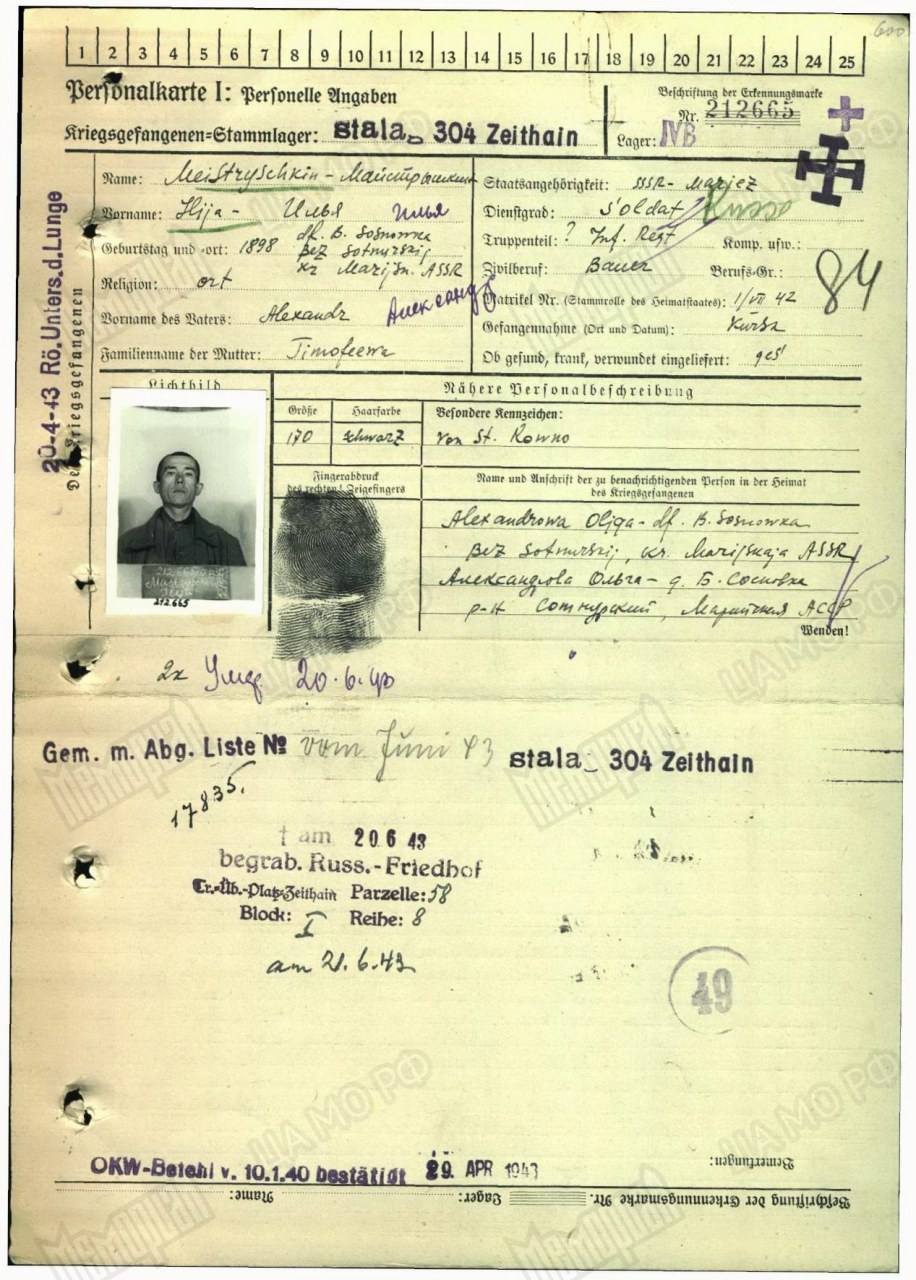 600
1 2 3 4 5 6 7 8 9 10 11 12 13 14 15 16 17 18 19 20 21 22 23 24 25
Personalkarte I: Personelle Angaben
Beschriftung der Erkennungsmarke
Nr. 212665
Kriegsgefangenen-Stammlager: Stala 304 Zeithain
Lager: IVB
20-4-43 Rö. Unters. d. Lunge
Des Kriegsgefangenen
Name: Meistryschkin - Майстрышкин
Vorname: Ilja - Илья Илья
Geburtstag und -ort: 1898 df. B. Sosnowka
Bez Sotnurskij
kr Marijsk. ASSR
Religion: ort
Vorname des Vaters: Alexandr Александр
Familienname der Mutter: Timofeewa
Staatsangehörigkeit: SSSR - Mariez
Dienstgrad: Soldat Russe
Truppenteil: ? Inf. Regt Komp. usw.:
Zivilberuf: Bauer Berufs-Gr.:
84
Matrikel Nr. (Stammrolle des Heimatstaates): 1/VII 42
Gefangennahme (Ort und Datum): Kursk
Ob gesund, krank, verwundet eingeliefert: ges
Lichtbild
Nähere Personalbeschreibung
Größe Haarfarbe Besondere Kennzeichen:
170 schwarz von St. Rowno
Fingerabdruck
des rechten! Zeigefingers
Name und Anschrift der zu benachrichtigenden Person in der Heimat
des Kriegsgefangenen
Alexandrowa Oljga - df. B. Sosnowka
Bez Sotnurskij, kr. Marijskaja ASSR
Александрова Ольга - д. Б. Сосновка
р-н Сотнурский, Марийская АССР
212665
Wenden!
2x Умер 20.6.43
Gem. m. Abg. Liste № vom Juni 43 Stala 304 Zeithain
17835.
† am 20 6 43
begrab. Russ.-Friedhof
Tr.-Üb.-Platz-Zeithain Parzelle: 58
Block: I Reihe: 8
am 21.6.43
49
OKW-Befehl v. 10.1.40 bestätigt 29. APR 1943
Bemerkungen:
Beschriftung der Erkennungsmarke Nr. Lager: Name:
МЕМОРИАЛ
ЦАМО РФ